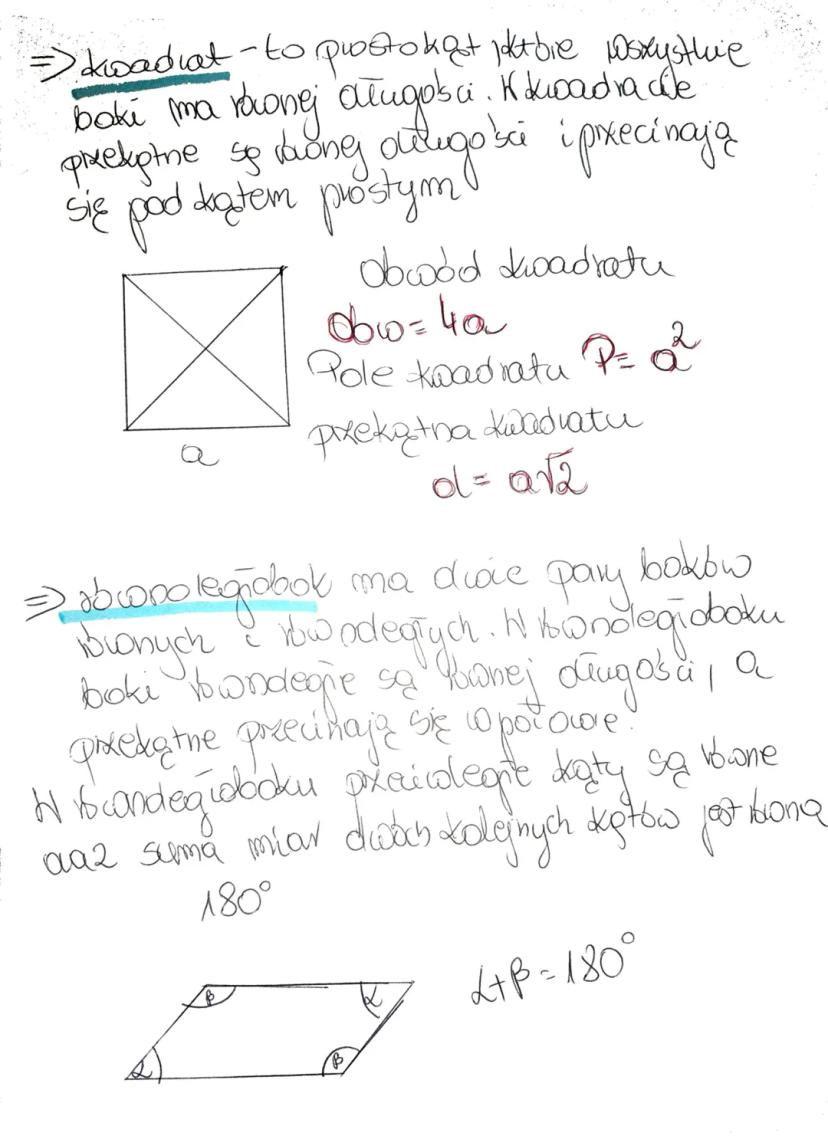 ⇒ kwadrat - to prostokąt które wszystkie
boki ma równej długości. W kwadracie
przekątne są równej długości i przecinają
się pod kątem prostym
Obwód kwadratu
Obw = 4a
Pole kwadratu P = a²
a
przekątna kwadratu
d = a√2
⇒ równoległobok ma dwie pary boków
równych i równoległych. W równoległoboku
boki równoległe są równej długości, a
przekątne przecinają się w połowie.
W równoległoboku przeciwległe kąty są równe
oraz suma miar dwóch kolejnych kątów jest równa
180°
α+β = 180°
β α
α β